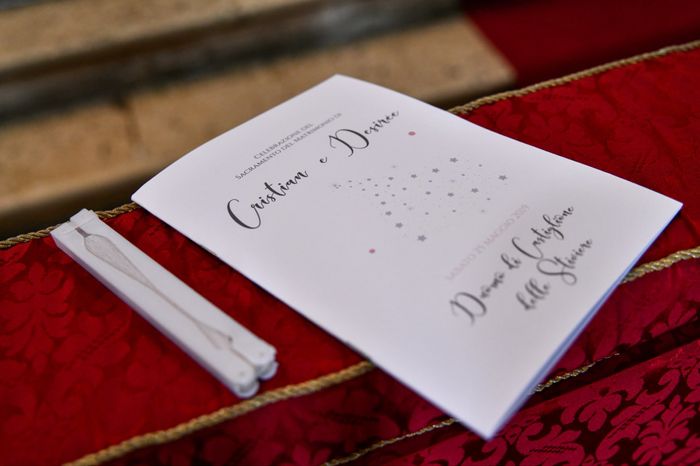 CELEBRAZIONE DEL
SACRAMENTO DEL MATRIMONIO DI
Cristian e Desiree
SABATO 25 MAGGIO 2019
Duomo di Castiglione
delle Stiviere